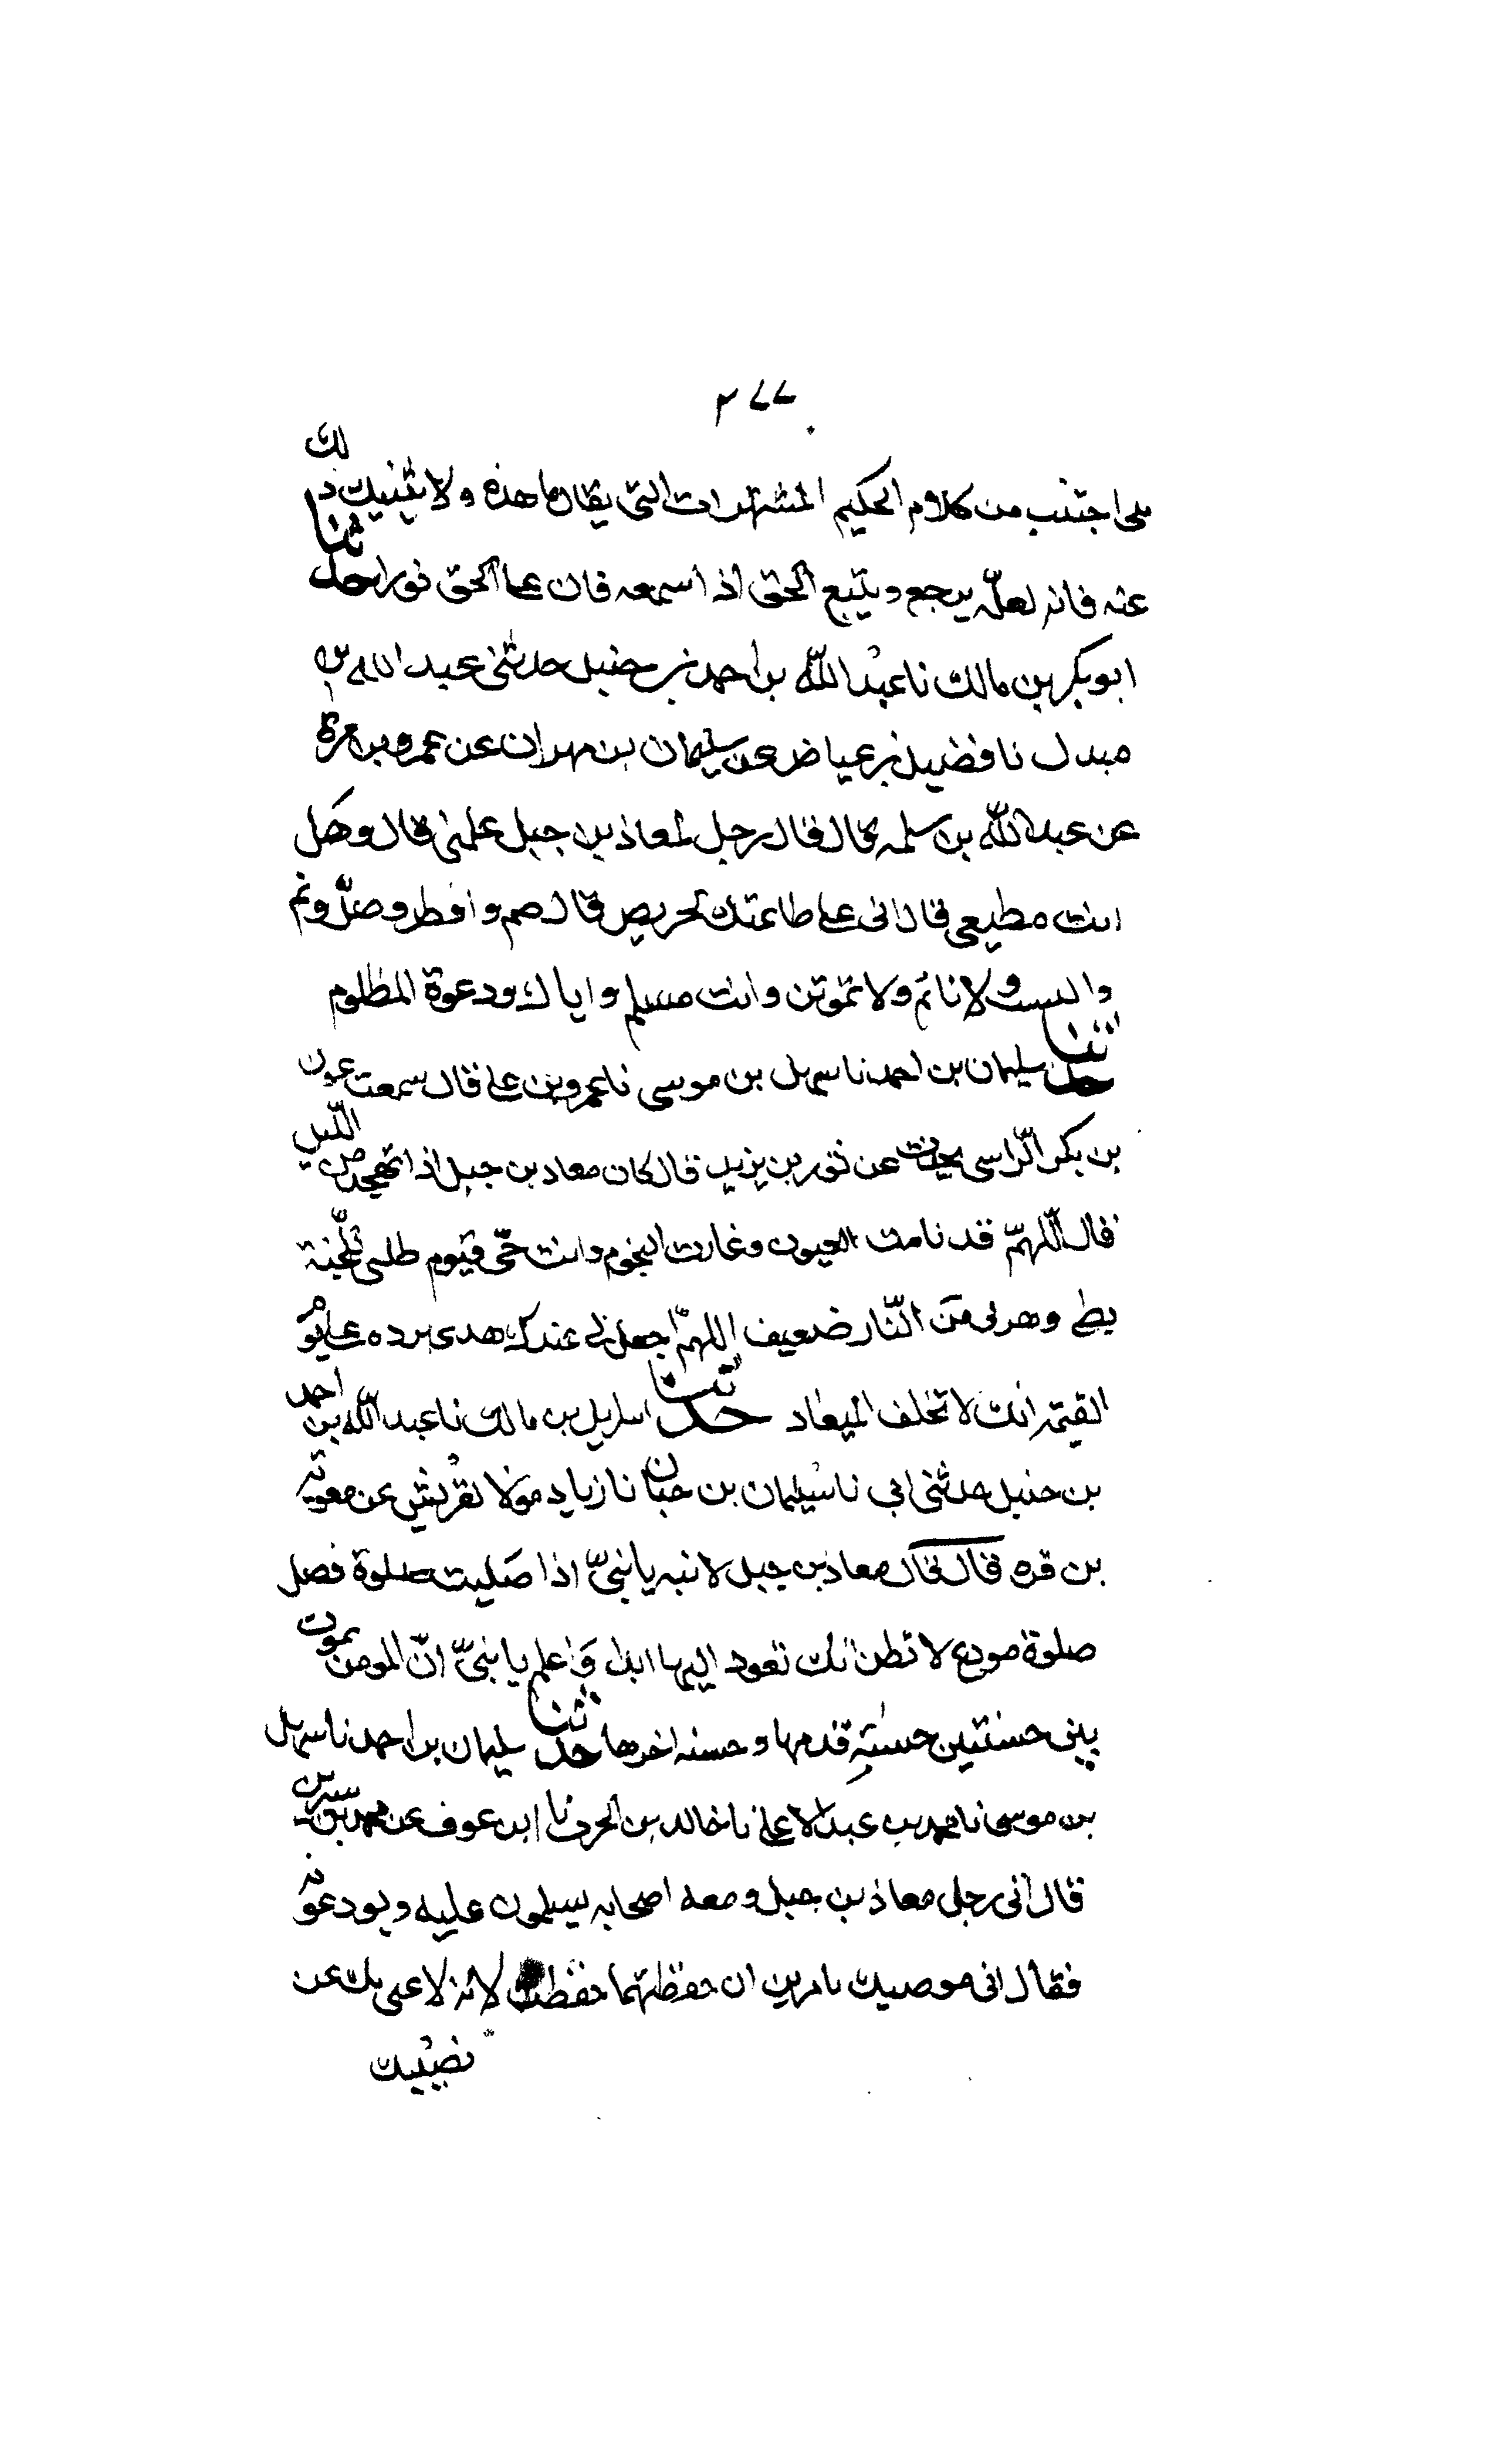 ٢٧٧
بلى اجتنب من كلام الحكيم المشتهرات التي يقال ما هذه ولا يثنيك ذلك
عنه فانه لعله يرجع ويتبع الحق اذا سمعه فان على الحق نورا حدثنا
ابو بكر بن مالك نا عبد الله بن احمد بن حنبل حدثنى عبد الله بن
مبدل نا فضيل بن عياض عن سليمان بن مهران عن عمرو بن مرة
عن عبد الله بن سلمه قال قال رجل لمعاذ بن جبل علمنى قال وهل
انت مطيعى قال انى على طاعتك لحريص قال صم وافطر وصلّ ونم
واكتسب ولا تاثم ولا تموتن وانت مسلم واياك ودعوة المظلوم
حدثنا سليمان بن احمد نا سهل بن موسى نا عمرو بن على قال سمعت عون
بن بكر الراسى يحدث عن ثور بن يزيد قال كان معاذ بن جبل اذا تهجد من الليل
قال اللهمّ قد نامت العيون وغارت النجوم وانت حىّ قيوم طلبى للجنة
بطى وهربى من النّار ضعيف اللهمّ اجعل لى عندك هدى ترده على يوم
القيمه انك لا تخلف الميعاد حدثنا ابو بكر بن مالك نا عبد الله بن احمد
بن حنبل حدثنى ابى نا سليمان بن حبان نا زياد مولا لقريش عن معوية
بن قره قال قال معاذ بن جبل لابنه يا بنىّ اذا صليت صلوة فصل
صلوة مودع لا تظن انك تعود اليها ابدا واعلم يا بنىّ انّ المومن يموت
بين حسنتين حسنة قدمها وحسنه اخرها حدثنا سليمان بن احمد نا سهل
بن موسى نا محمد بن عبد الاعلى نا خالد بن الحرث نا ابن عوف عن محمد بن سيرين
قال اتى رجل معاذ بن جبل ومعه اصحابه يسلمون عليه ويودعونه
فقال انى موصيك بامرين ان حفظتهما حفظت لانه لا غنى بك عن
نصيبك